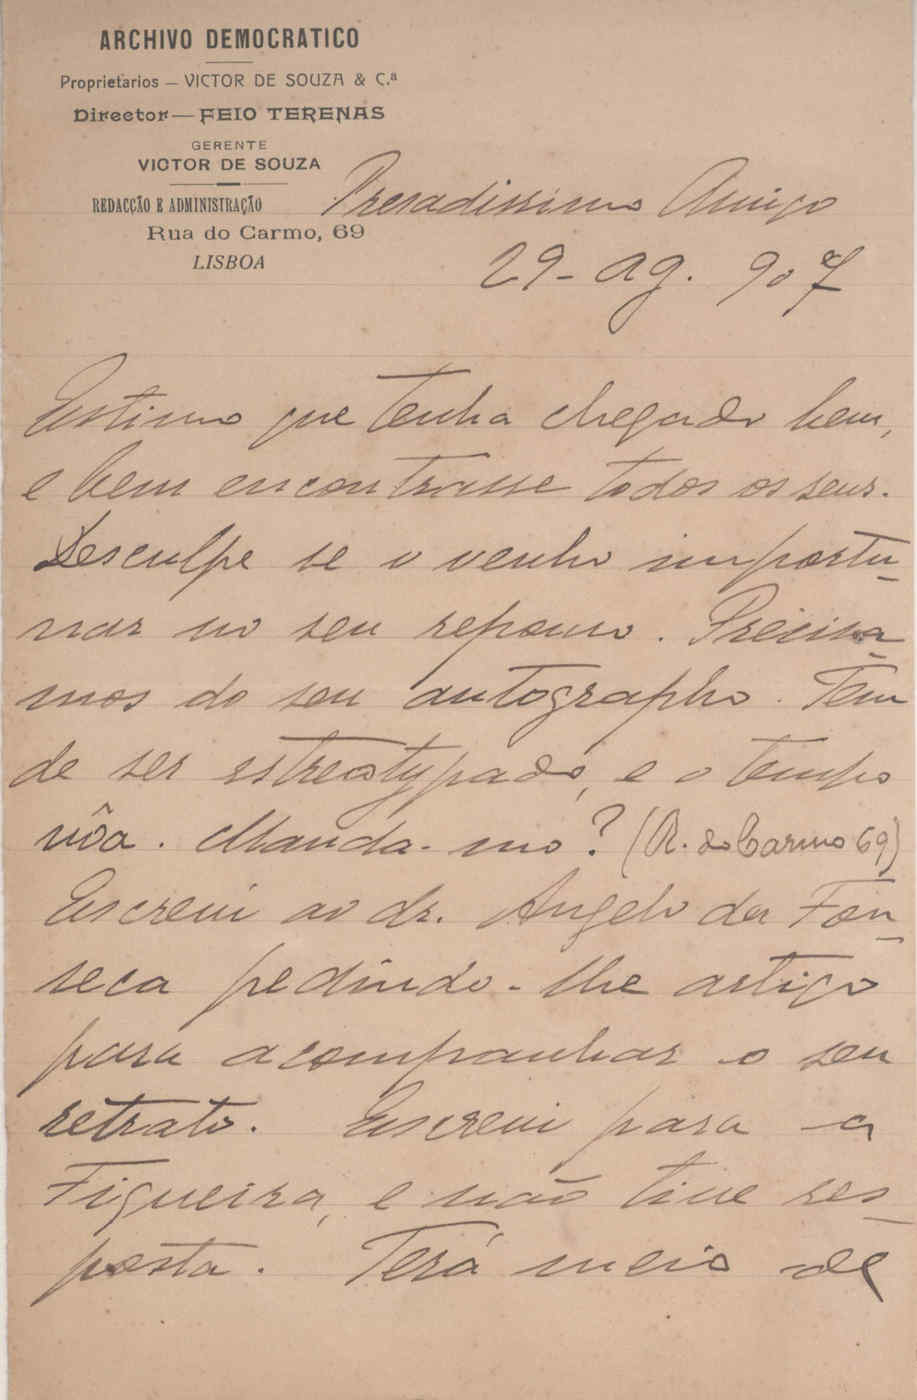 ARCHIVO DEMOCRATICO
Proprietarios — VICTOR DE SOUZA & C.ª
Director — FEIO TERENAS
GERENTE
VICTOR DE SOUZA
REDACÇÃO E ADMINISTRAÇÃO
Rua do Carmo, 69
LISBOA
Presadissimo Amigo
29 - Ag. 907
Estimo que tenha chegado bem,
e bem encontrasse todos os seus.
Desculpe se o venho importu-
nar no seu repouso. Precisa-
mos do seu autographo. Tem
de ser estreotypado, e o tempo
vôa. Manda-mo? (R. do Carmo 69)
Escrevi ao dr. Angelo da Fon-
seca pedindo-lhe artigo
para acompanhar o seu
retrato. Escrevi para a
Figueira, e não tive res-
posta. Terá meio de